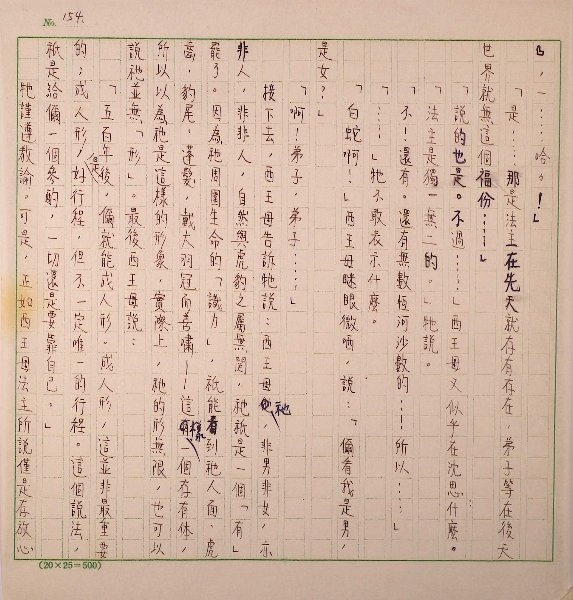 No. 154.
⋯⋯哈々!」
「是⋯⋯那是法主在先天就存有存在,弟子等在後天
世界就無這個福份⋯⋯」
「說的也是。不過⋯⋯」西王母又似乎在沈思什麼。
「法主是獨一無二的。」牠說。
「不!還有。還有無數恆河沙數的⋯!所以⋯⋯」
「⋯⋯」牠不敢表示什麼。
「白蛇啊!」西王母瞇眼微哂,說:「儞看我是男,
是女?」
「啊!弟子⋯弟子⋯⋯」
接下去,西王母告訴牠說:西王母祂,非男非女,亦
非人,非非人,自然與虎豹之屬無關,祂祇是一個「有」
罷了。因為祂周圍生命的「識力」,祇能看到祂人面、虎
齒,豹尾,蓬髮,戴大羽冠而善嘯——這樣一個存有体,
所以以為祂是這樣的形象,實際上,祂的形無限,也可以
說祂並無「形」。最後西王母說:
「五百年後,儞就能成人形。成人形,這並非最重要
的;成人形,是好行程,但不一定唯一的行程。這個說法,
祇是給儞一個參酌,一切還是要靠自己。」
牠謹遵教諭。可是,正如西王母法主所說僅是存放心
(20×25=500)